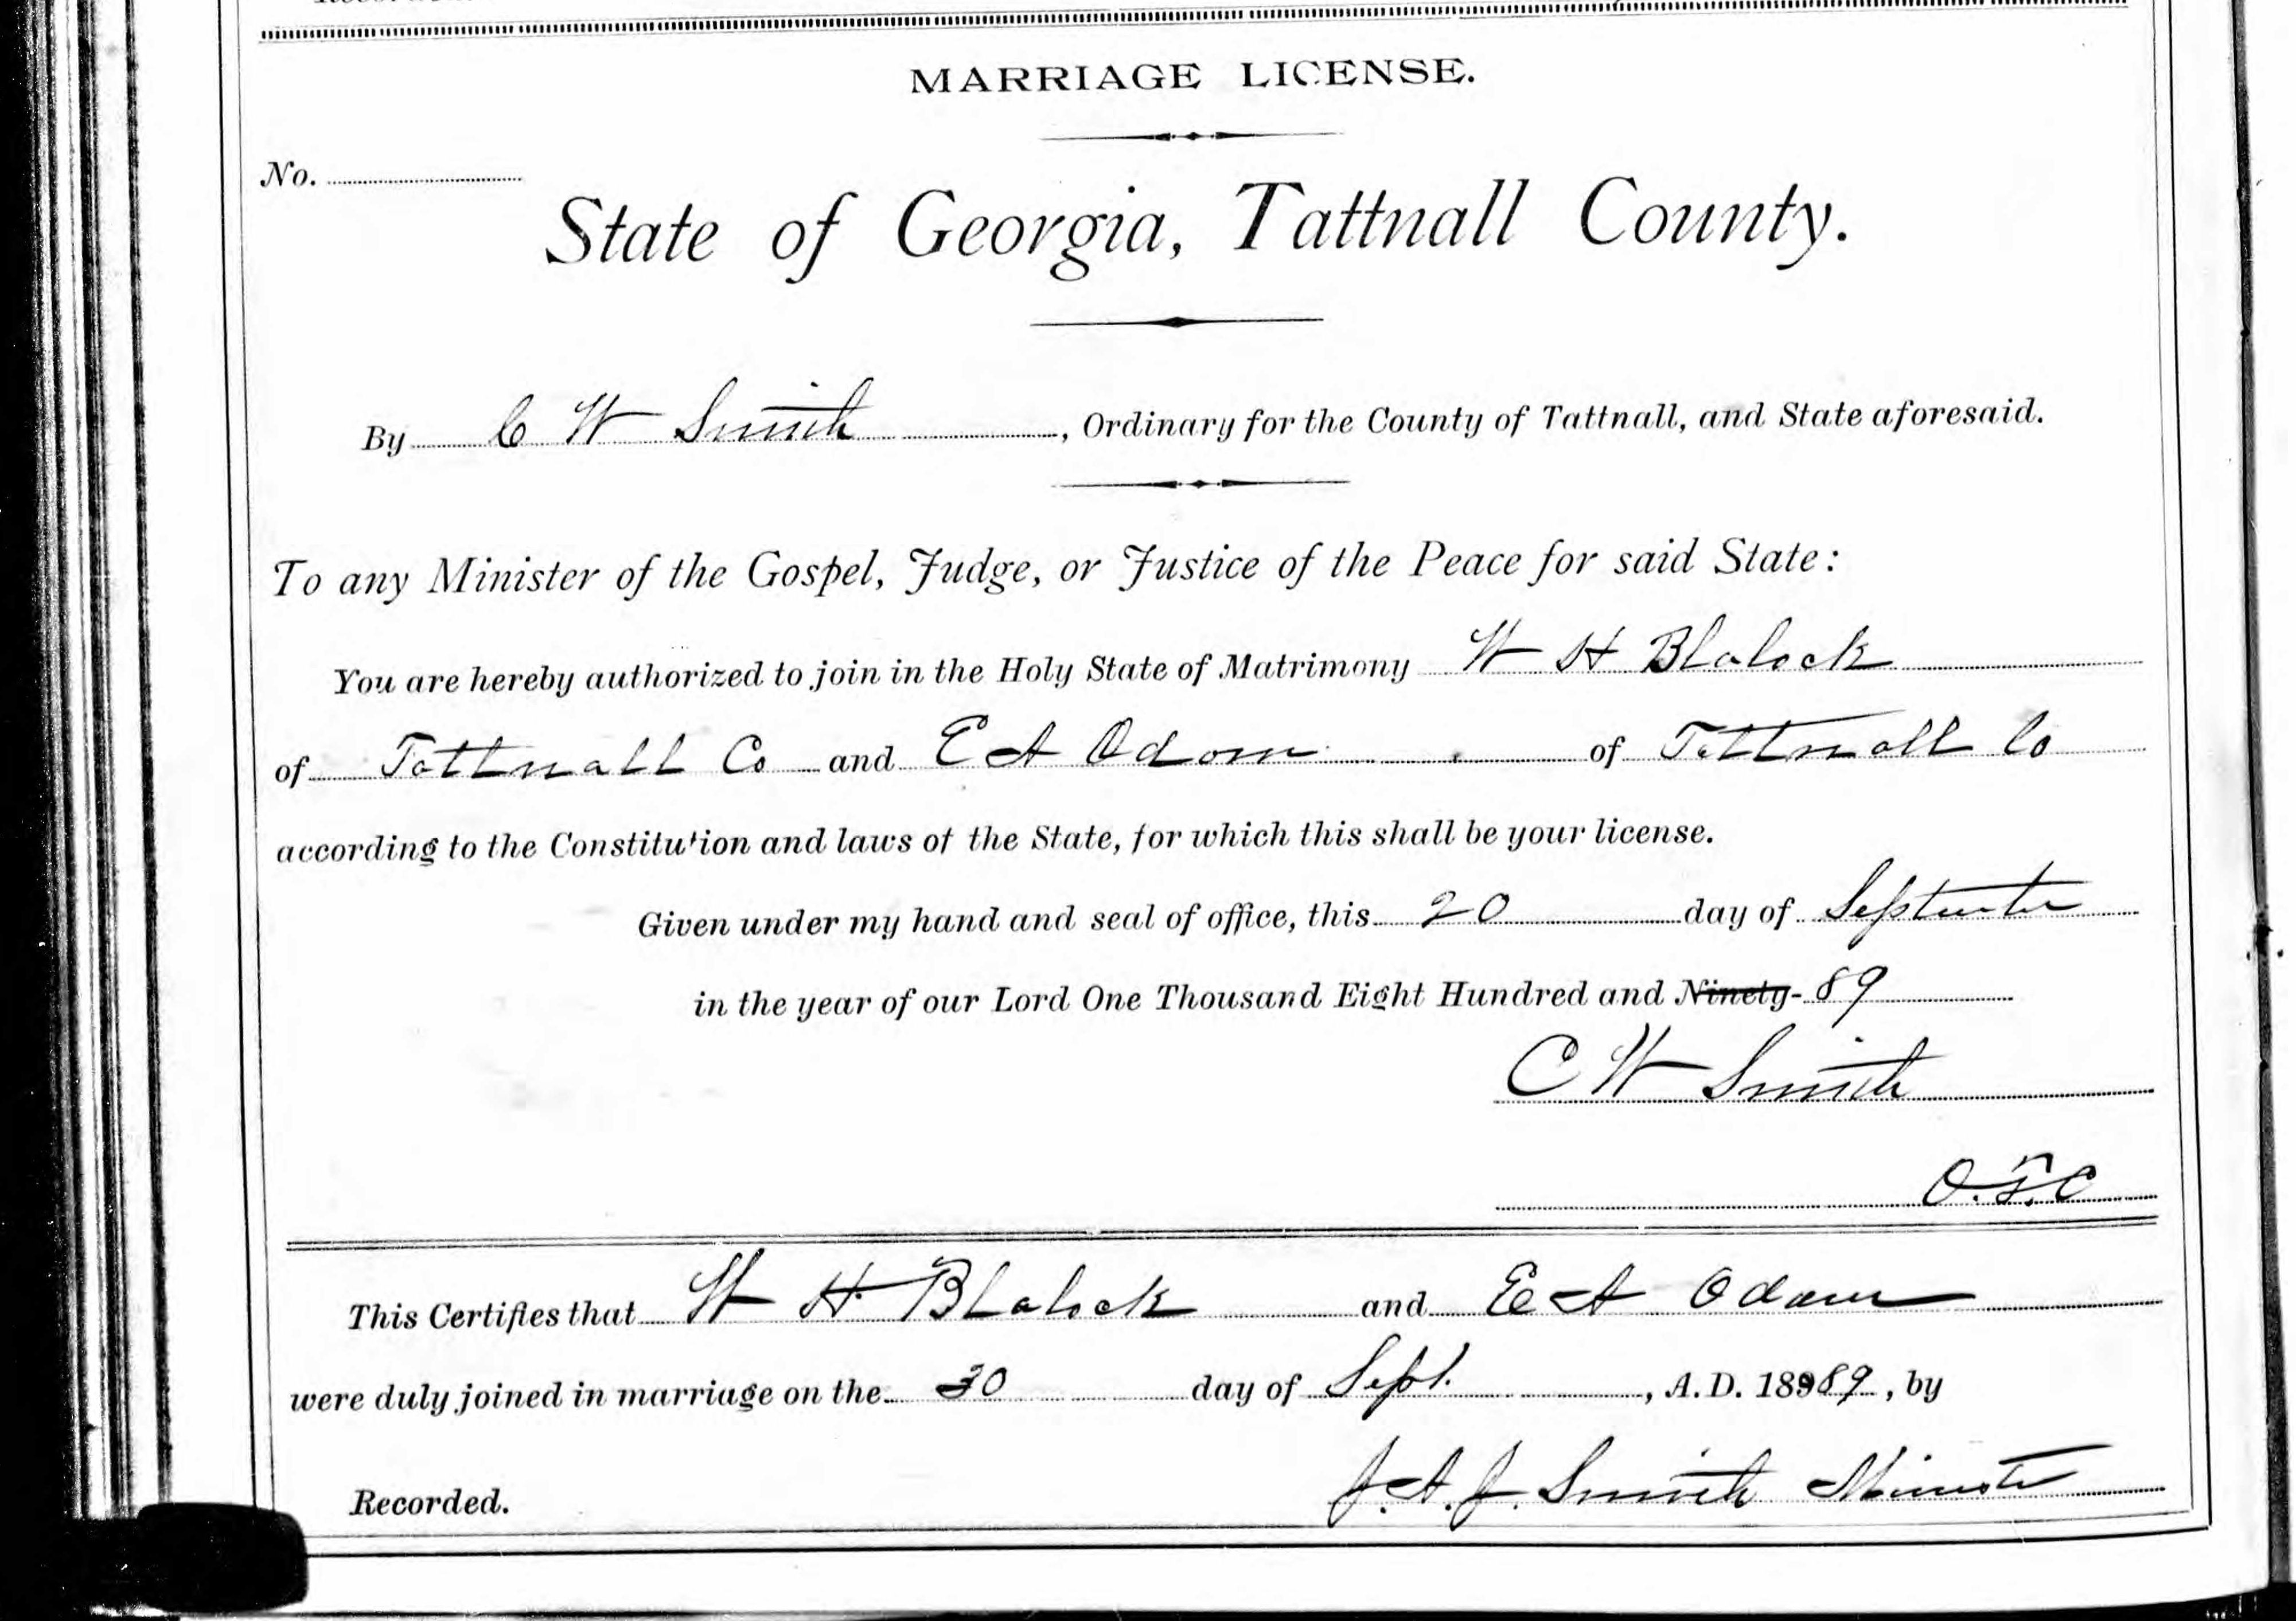 MARRIAGE LICENSE.
No.
State of Georgia, Tattnall County.
By C W Smith, Ordinary for the County of Tattnall, and State aforesaid.
To any Minister of the Gospel, Judge, or Justice of the Peace for said State:
You are hereby authorized to join in the Holy State of Matrimony W H Blalock
of Tattnall Co and E A Odom of Tattnall Co
according to the Constitution and laws of the State, for which this shall be your license.
Given under my hand and seal of office, this 20 day of September
in the year of our Lord One Thousand Eight Hundred and Ninety- 89
C W Smith
O.T.C
This Certifies that W H Blalock and E A Odom
were duly joined in marriage on the day of Sept., A.D. 18989, by
J. A. J. Smith Minister
Recorded.